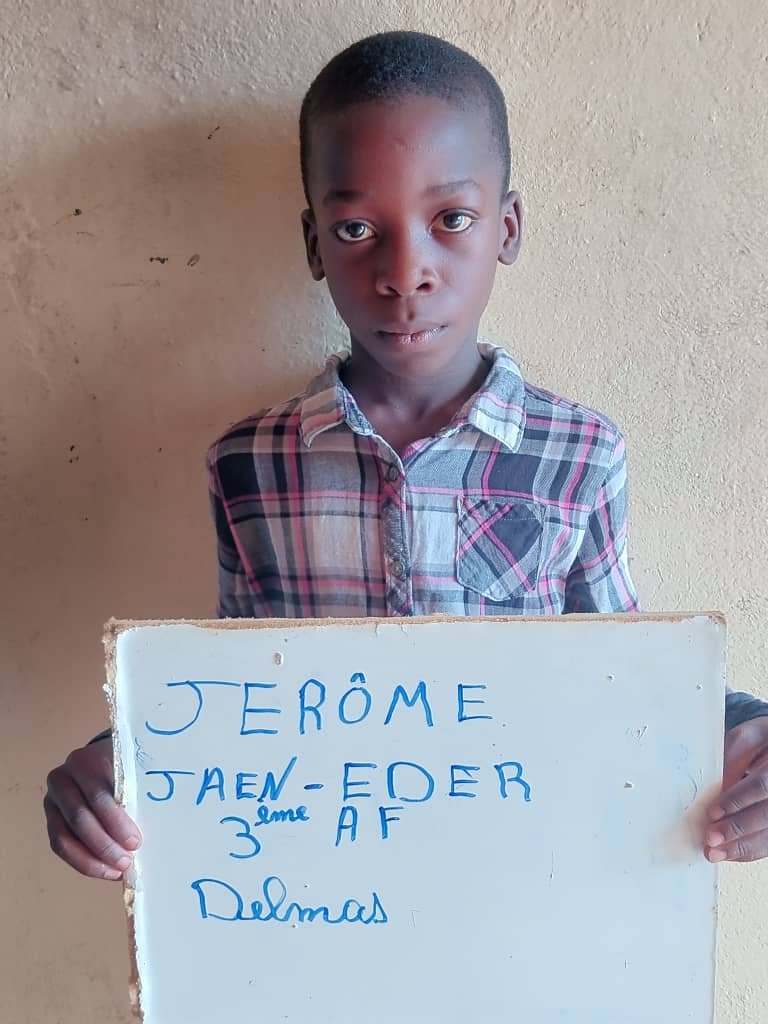 JERÔME
JAEN-EDER
3ème AF
Delmas